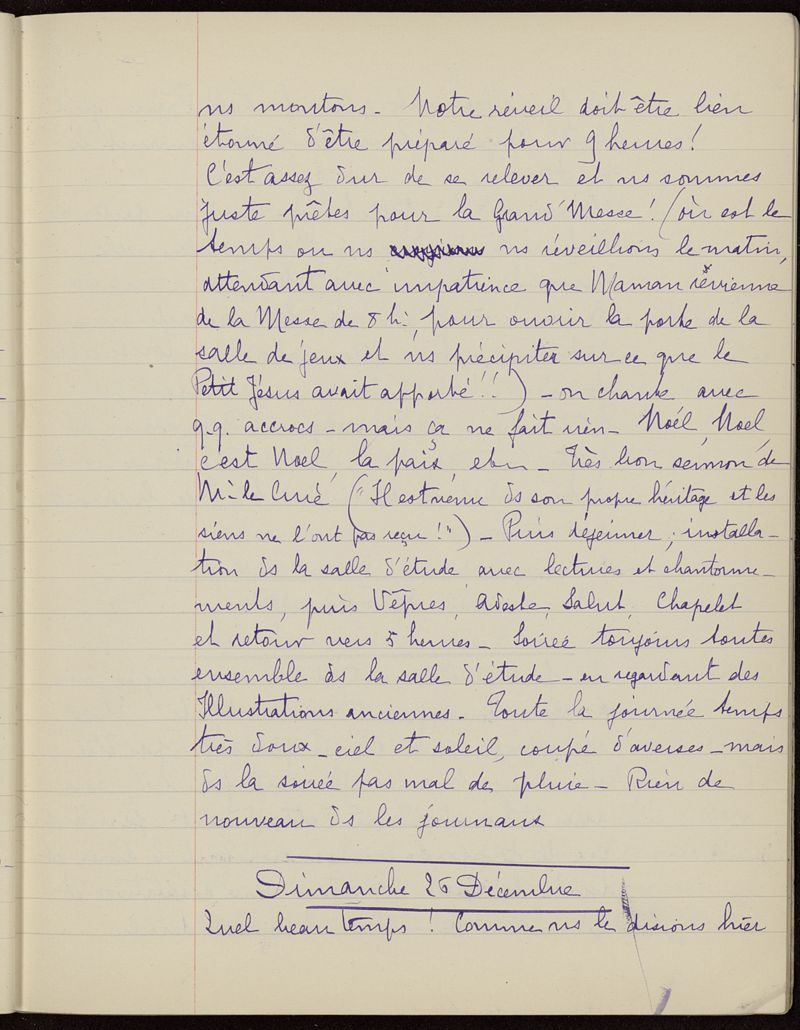 ns montons. Notre réveil doit être bien
étonné d'être préparé pour 9 heures!
C'est assez dur de se relever et ns sommes
juste prêtes pour la Grand'Messe! (où est le
temps ou ns ns réveillions le matin,
attendant avec impatience que Maman revienne
de la Messe de 8 h: pour ouvrir la porte de la
salle de jeux et ns précipiter sur ce que le
Petit Jésus avait apporté!!) - on chante avec
q.q. accrocs - mais ça ne fait rien - Noël, Noel,
c'est Noel, la paix, etc - Très bon sermon de
Mr le Curé ("Il est venu ds son propre héritage et les
siens ne l'ont pas reçu!") - Puis déjeuner; installa-
tion ds la salle d'étude avec lectures et chantonne-
ments, puis Vêpres, Adeste, Salut, Chapelet
et retour vers 5 heures - Soirée toujours toutes
ensemble ds la salle d'étude - en regardant des
Illustrations anciennes. Toute la journée temps
très doux - ciel et soleil, coupé d'averses - mais
ds la soirée pas mal de pluie - Rien de
nouveau ds les journaux
Dimanche 26 Décembre
Quel beau temps! Comme ns le disions hier